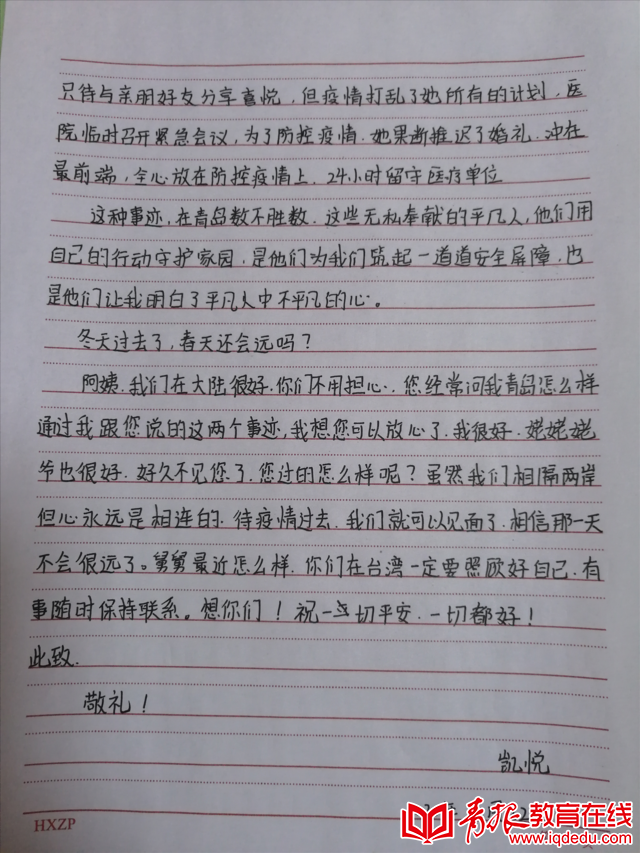 只待与亲朋好友分享喜悦，但疫情打乱了她所有的计划，医
院临时召开紧急会议，为了防控疫情．她果断推迟了婚礼．冲在
最前端，全心放在防控疫情上．24小时留守医疗单位
这种事迹，在青岛数不胜数．这些无私奉献的平凡人，他们用
自己的行动守护家园，是他们为我们筑起一道道安全屏障，也
是他们让我明白了平凡人中不平凡的心。
冬天过去了，春天还会远吗？
阿姨．我们在大陆很好．你们不用担心．您经常问我青岛怎么样
通过我跟您说的这两个事迹，我想您可以放心了．我很好．姥姥姥
爷也很好．好久不见您了．您过的怎么样呢？虽然我们相隔两岸
但心永远是相连的．待疫情过去．我们就可以见面了．相信那一天
不会很远了。舅舅最近怎么样．你们在台湾一定要照顾好自己．有
事随时保持联系。想你们！祝一切平安．一切都好！
此致．
敬礼！
凯悦
HXZP
青报教育在线
www.iqdedu.com